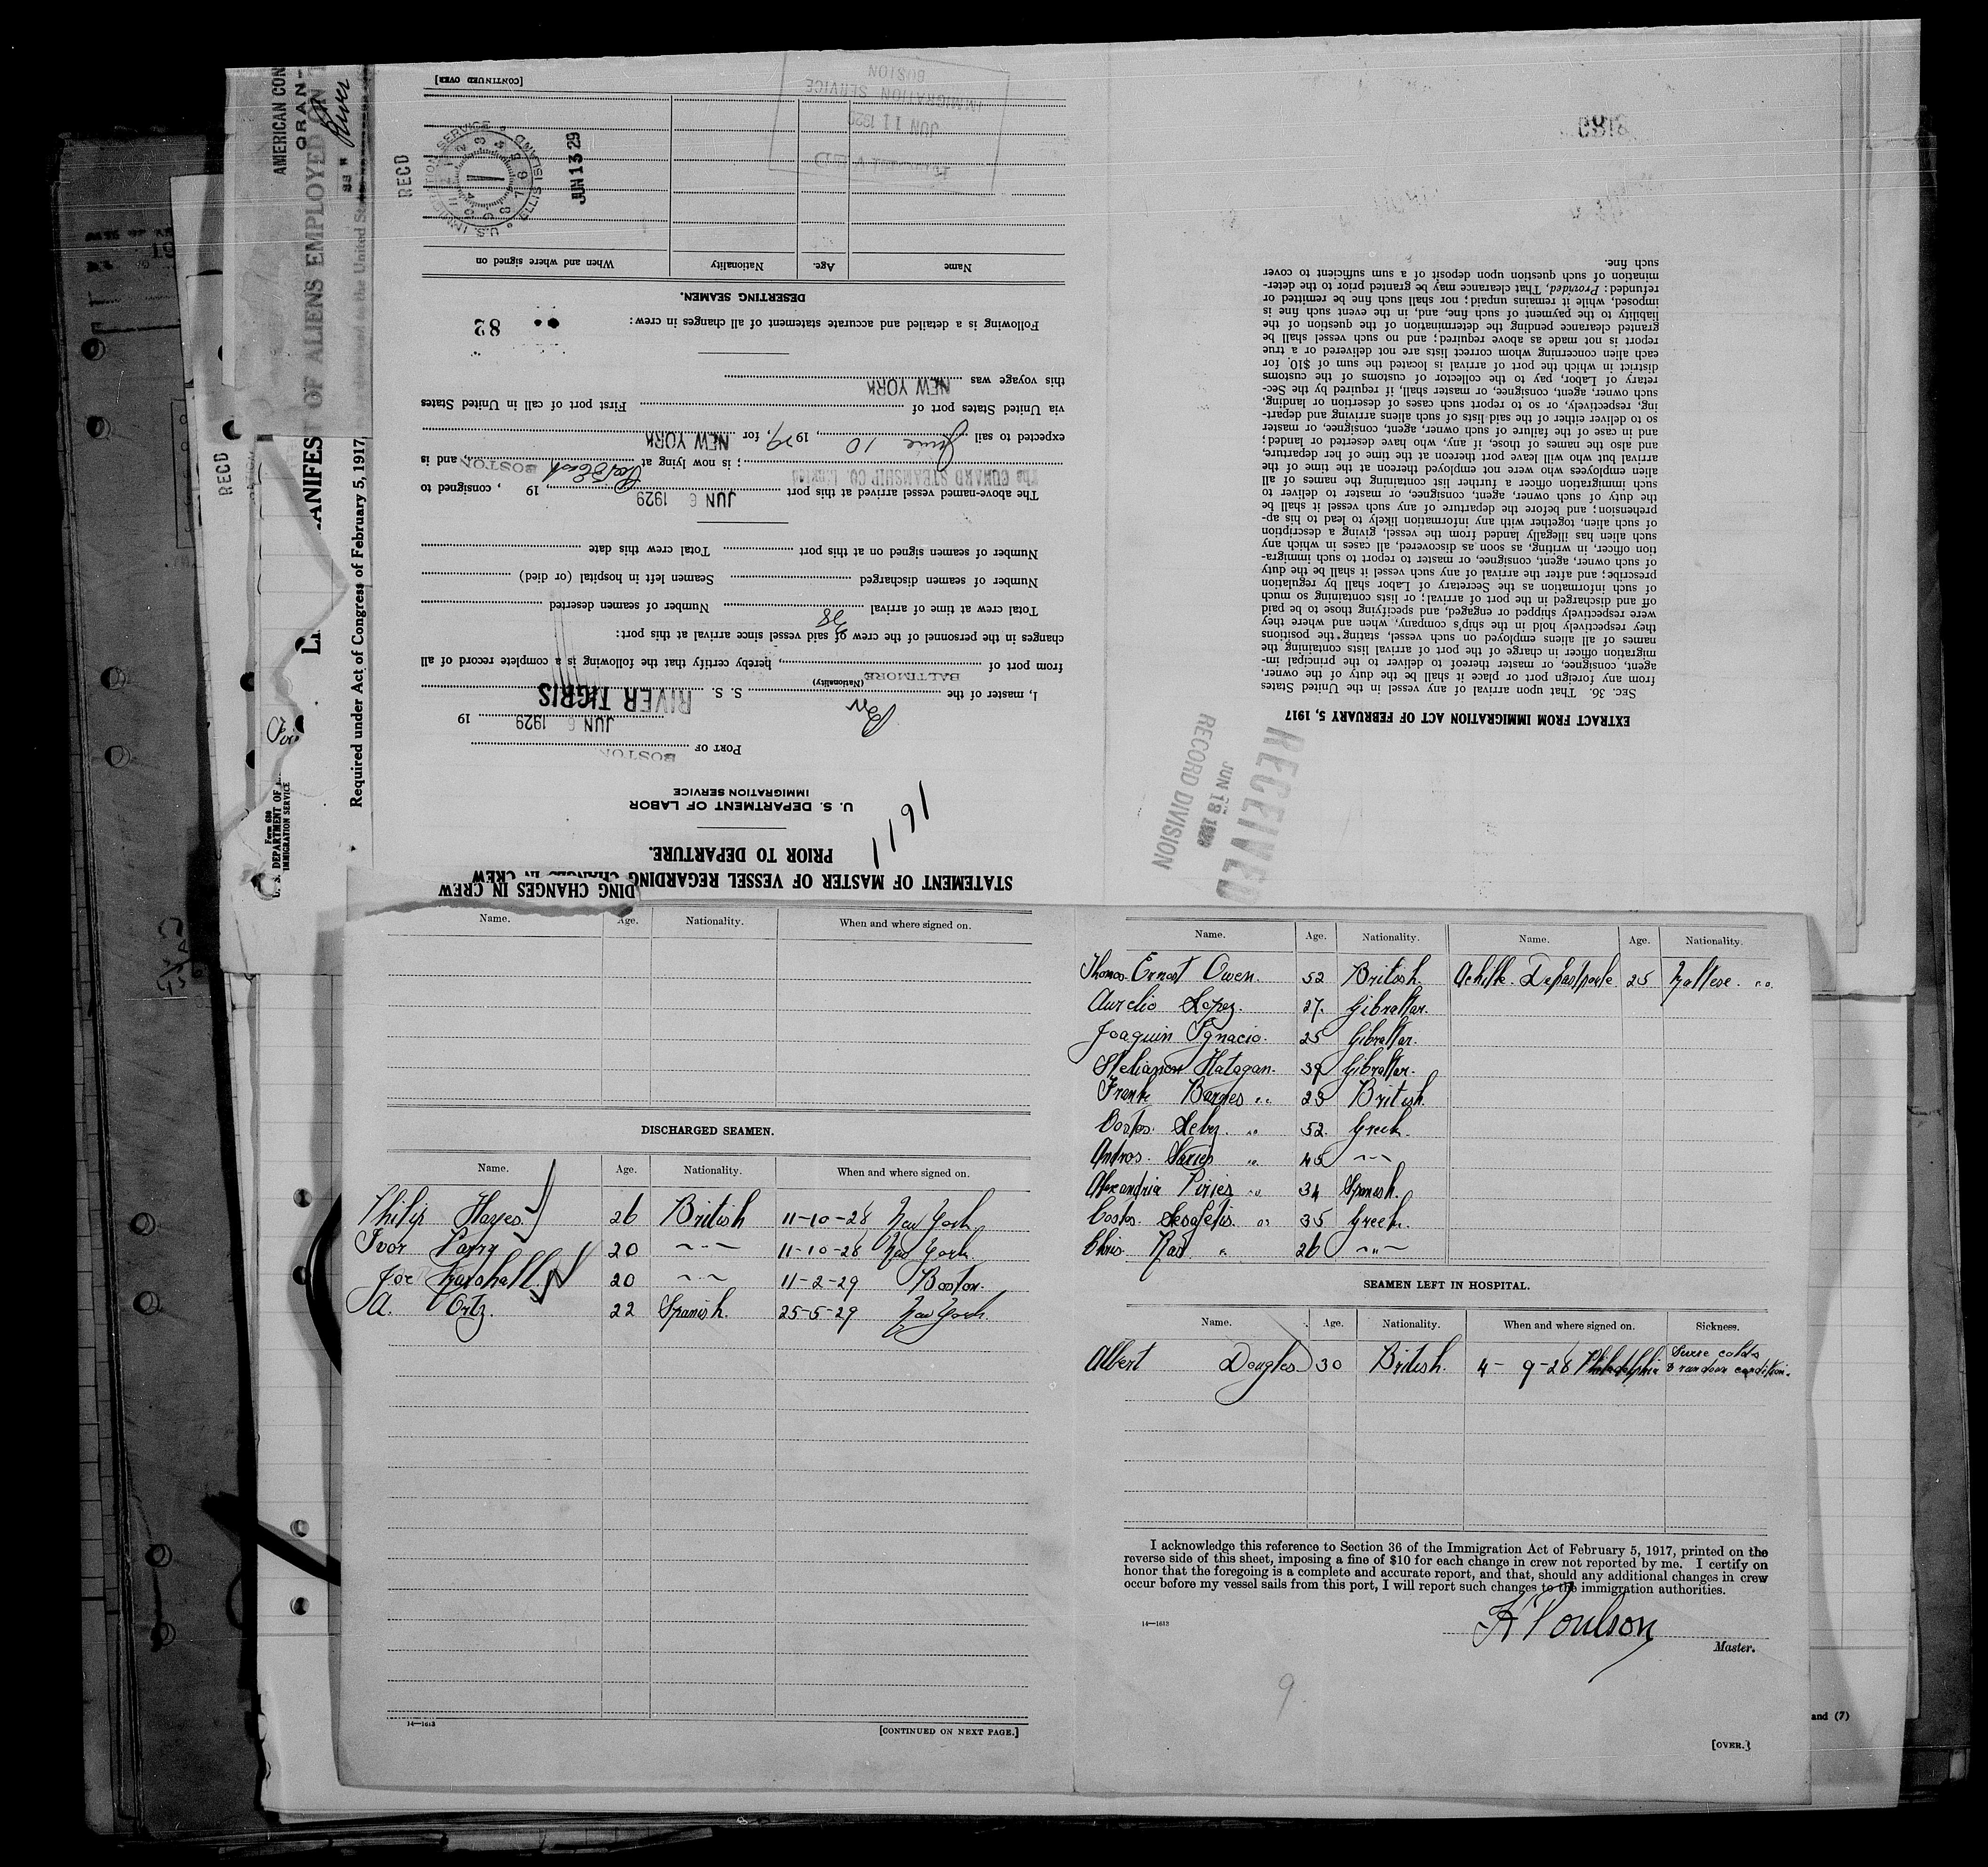 AMERICAN CON
ORAN
OF ALIENS EMPLOYED ON
River
RECD
Required under Act of Congress of February 5, 1917
Form 680
U. S. DEPARTMENT OF
IMMIGRATION SERVICE
STATEMENT OF MASTER OF VESSEL REGARDING CHANGES IN CREW
PRIOR TO DEPARTURE.
1191
U. S. DEPARTMENT OF LABOR
IMMIGRATION SERVICE
PORT OF BOSTON
JUN 6 1929 19
I, master of the Br S. S. RIVER TIGRIS
(Nationality)
from port of BALTIMORE, hereby certify that the following is a complete record of all
changes in the personnel of the crew of said vessel since arrival at this port:
Total crew at time of arrival 38 Number of seamen deserted
Number of seamen discharged Seamen left in hospital (or died)
Number of seamen signed on at this port Total crew this date
The above-named vessel arrived at this port JUN 6 1929, 19 , consigned to
The CUNARD STEAMSHIP CO. Limited; is now lying at BOSTON, and is
expected to sail June 10, 1929, for NEW YORK
via United States port of First port of call in United States
this voyage was NEW YORK
Following is a detailed and accurate statement of all changes in crew:
82
DESERTING SEAMEN.
Name Age. Nationality When and where signed on
RECD
U.S. IMMIGRATION SERVICE ELLIS ISLAND
JUN 13 29
RECEIVED
JUN 11 1929
IMMIGRATION SERVICE
BOSTON
[CONTINUED OVER]
RECEIVED
JUN 18
RECORD DIVISION
EXTRACT FROM IMMIGRATION ACT OF FEBRUARY 5, 1917
SEC. 36. That upon arrival of any vessel in the United States
from any foreign port or place it shall be the duty of the owner,
agent, consignee, or master thereof to deliver to the principal im-
migration officer in charge of the port of arrival lists containing the
names of all aliens employed on such vessel, stating the positions
they respectively hold in the ship's company, when and where they
were respectively shipped or engaged, and specifying those to be paid
off and discharged in the port of arrival; or lists containing so much
of such information as the Secretary of Labor shall by regulation
prescribe; and after the arrival of any such vessel it shall be the duty
of such owner, agent, consignee, or master to report to such immigra-
tion officer, in writing, as soon as discovered, all cases in which any
such alien has illegally landed from the vessel, giving a description
of such alien, together with any information likely to lead to his ap-
prehension; and before the departure of any such vessel it shall be
the duty of such owner, agent, consignee, or master to deliver to
such immigration officer a further list containing the names of all
alien employees who were not employed thereon at the time of the
arrival but who will leave port thereon at the time of her departure,
and also the names of those, if any, who have deserted or landed;
and in case of the failure of such owner, agent, consignee, or master
so to deliver either of the said lists of such aliens arriving and depart-
ing, respectively, or so to report such cases of desertion or landing,
such owner, agent, consignee, or master shall, if required by the Sec-
retary of Labor, pay to the collector of customs of the customs
district in which the port of arrival is located the sum of $10. for
each alien concerning whom correct lists are not delivered or a true
report is not made as above required; and no such vessel shall be
granted clearance pending the determination of the question of the
liability to the payment of such fine, and, in the event such fine is
imposed, while it remains unpaid; nor shall such fine be remitted or
refunded: Provided, That clearance may be granted prior to the deter-
mination of such question upon deposit of a sum sufficient to cover
such fine.
DING CHANGES IN CREW
Name. Age. Nationality. When and where signed on.
DISCHARGED SEAMEN.
Name. Age. Nationality. When and where signed on.
Philip Hayes. 26 British 11-10-28 New York
Ivor Parry 20 -"- 11-10-28 New York
Joe Marshall. 20 -"- 11-2-29 Boston.
A. Ortz. 22 Spanish. 25-5-29 New York
14—1613
[CONTINUED ON NEXT PAGE.]
Name. Age. Nationality. Name. Age. Nationality.
Thomas Ernest Owen. 52 British. Achille 25 Maltese.
Aurelio Lopez. 27. Gibraltar.
Joaquin Ignacio. 25 Gibraltar.
Hatagan. 39 Gibraltar.
Frank Barnes 23 British.
52. Greek.
Andros. 45 -"-
Alexandria Piries 34 Spanish.
Costos. 35 Greek.
Chris. 26 -"-
SEAMEN LEFT IN HOSPITAL.
Name. Age. Nationality. When and where signed on. Sickness.
Albert Douglas 30 British. 4-9-28 Philadelphia Severe colds
& rundown condition.
I acknowledge this reference to Section 36 of the Immigration Act of February 5, 1917, printed on the
reverse side of this sheet, imposing a fine of $10 for each change in crew not reported by me. I certify on
honor that the foregoing is a complete and accurate report, and that, should any additional changes in crew
occur before my vessel sails from this port, I will report such changes to the immigration authorities.
14—1613
Poulson
Master.
9
[OVER.]
and (7)